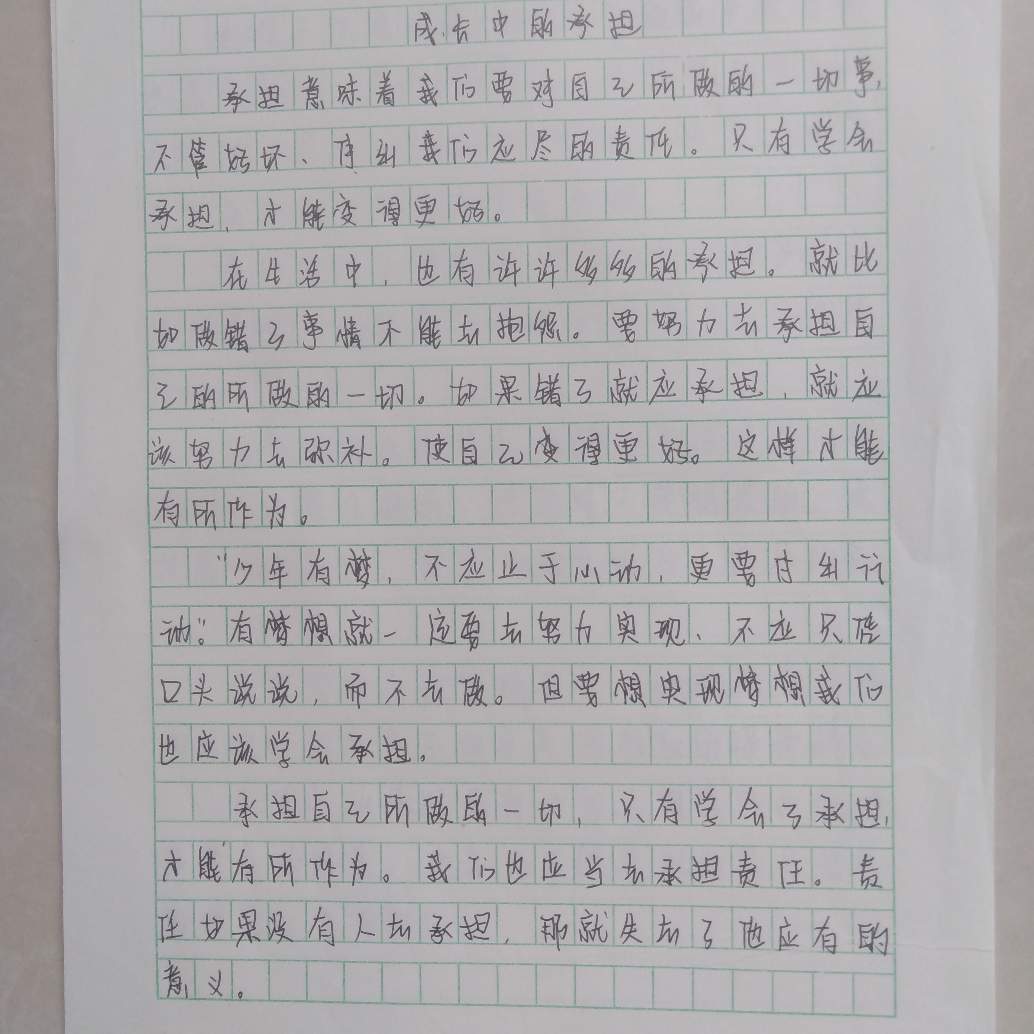 成长中的承担
承担意味着我们要对自己所做的一切事,
不管好坏、付出我们应尽的责任。只有学会
承担,才能变得更好。
在生活中,也有许许多多的承担。就比
如做错了事情不能去抱怨。要努力去承担自
己的所做的一切。如果错了就应承担,就应
该努力去弥补。使自己变得更好。这样才能
有所作为。
“少年有梦,不应止于心动,更要付出行
动。”有梦想就一定要去努力实现、不应只凭
口头说说,而不去做。但要想实现梦想我们
也应该学会承担。
承担自己所做的一切,只有学会了承担,
才能有所作为。我们也应当去承担责任。责
任如果没有人去承担,那就失去了他应有的
意义。